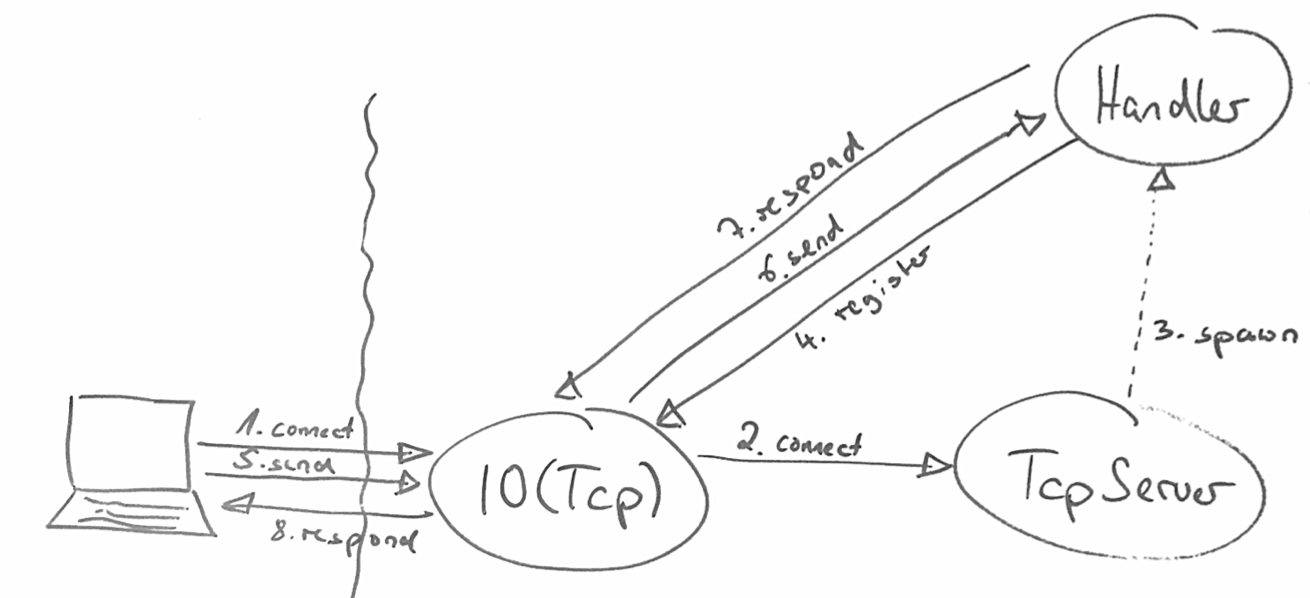 Handler
7. respond
6. send
4. register
3. spawn
1. connect
5. send
8. respond
IO(Tcp)
2. connect
TcpServer